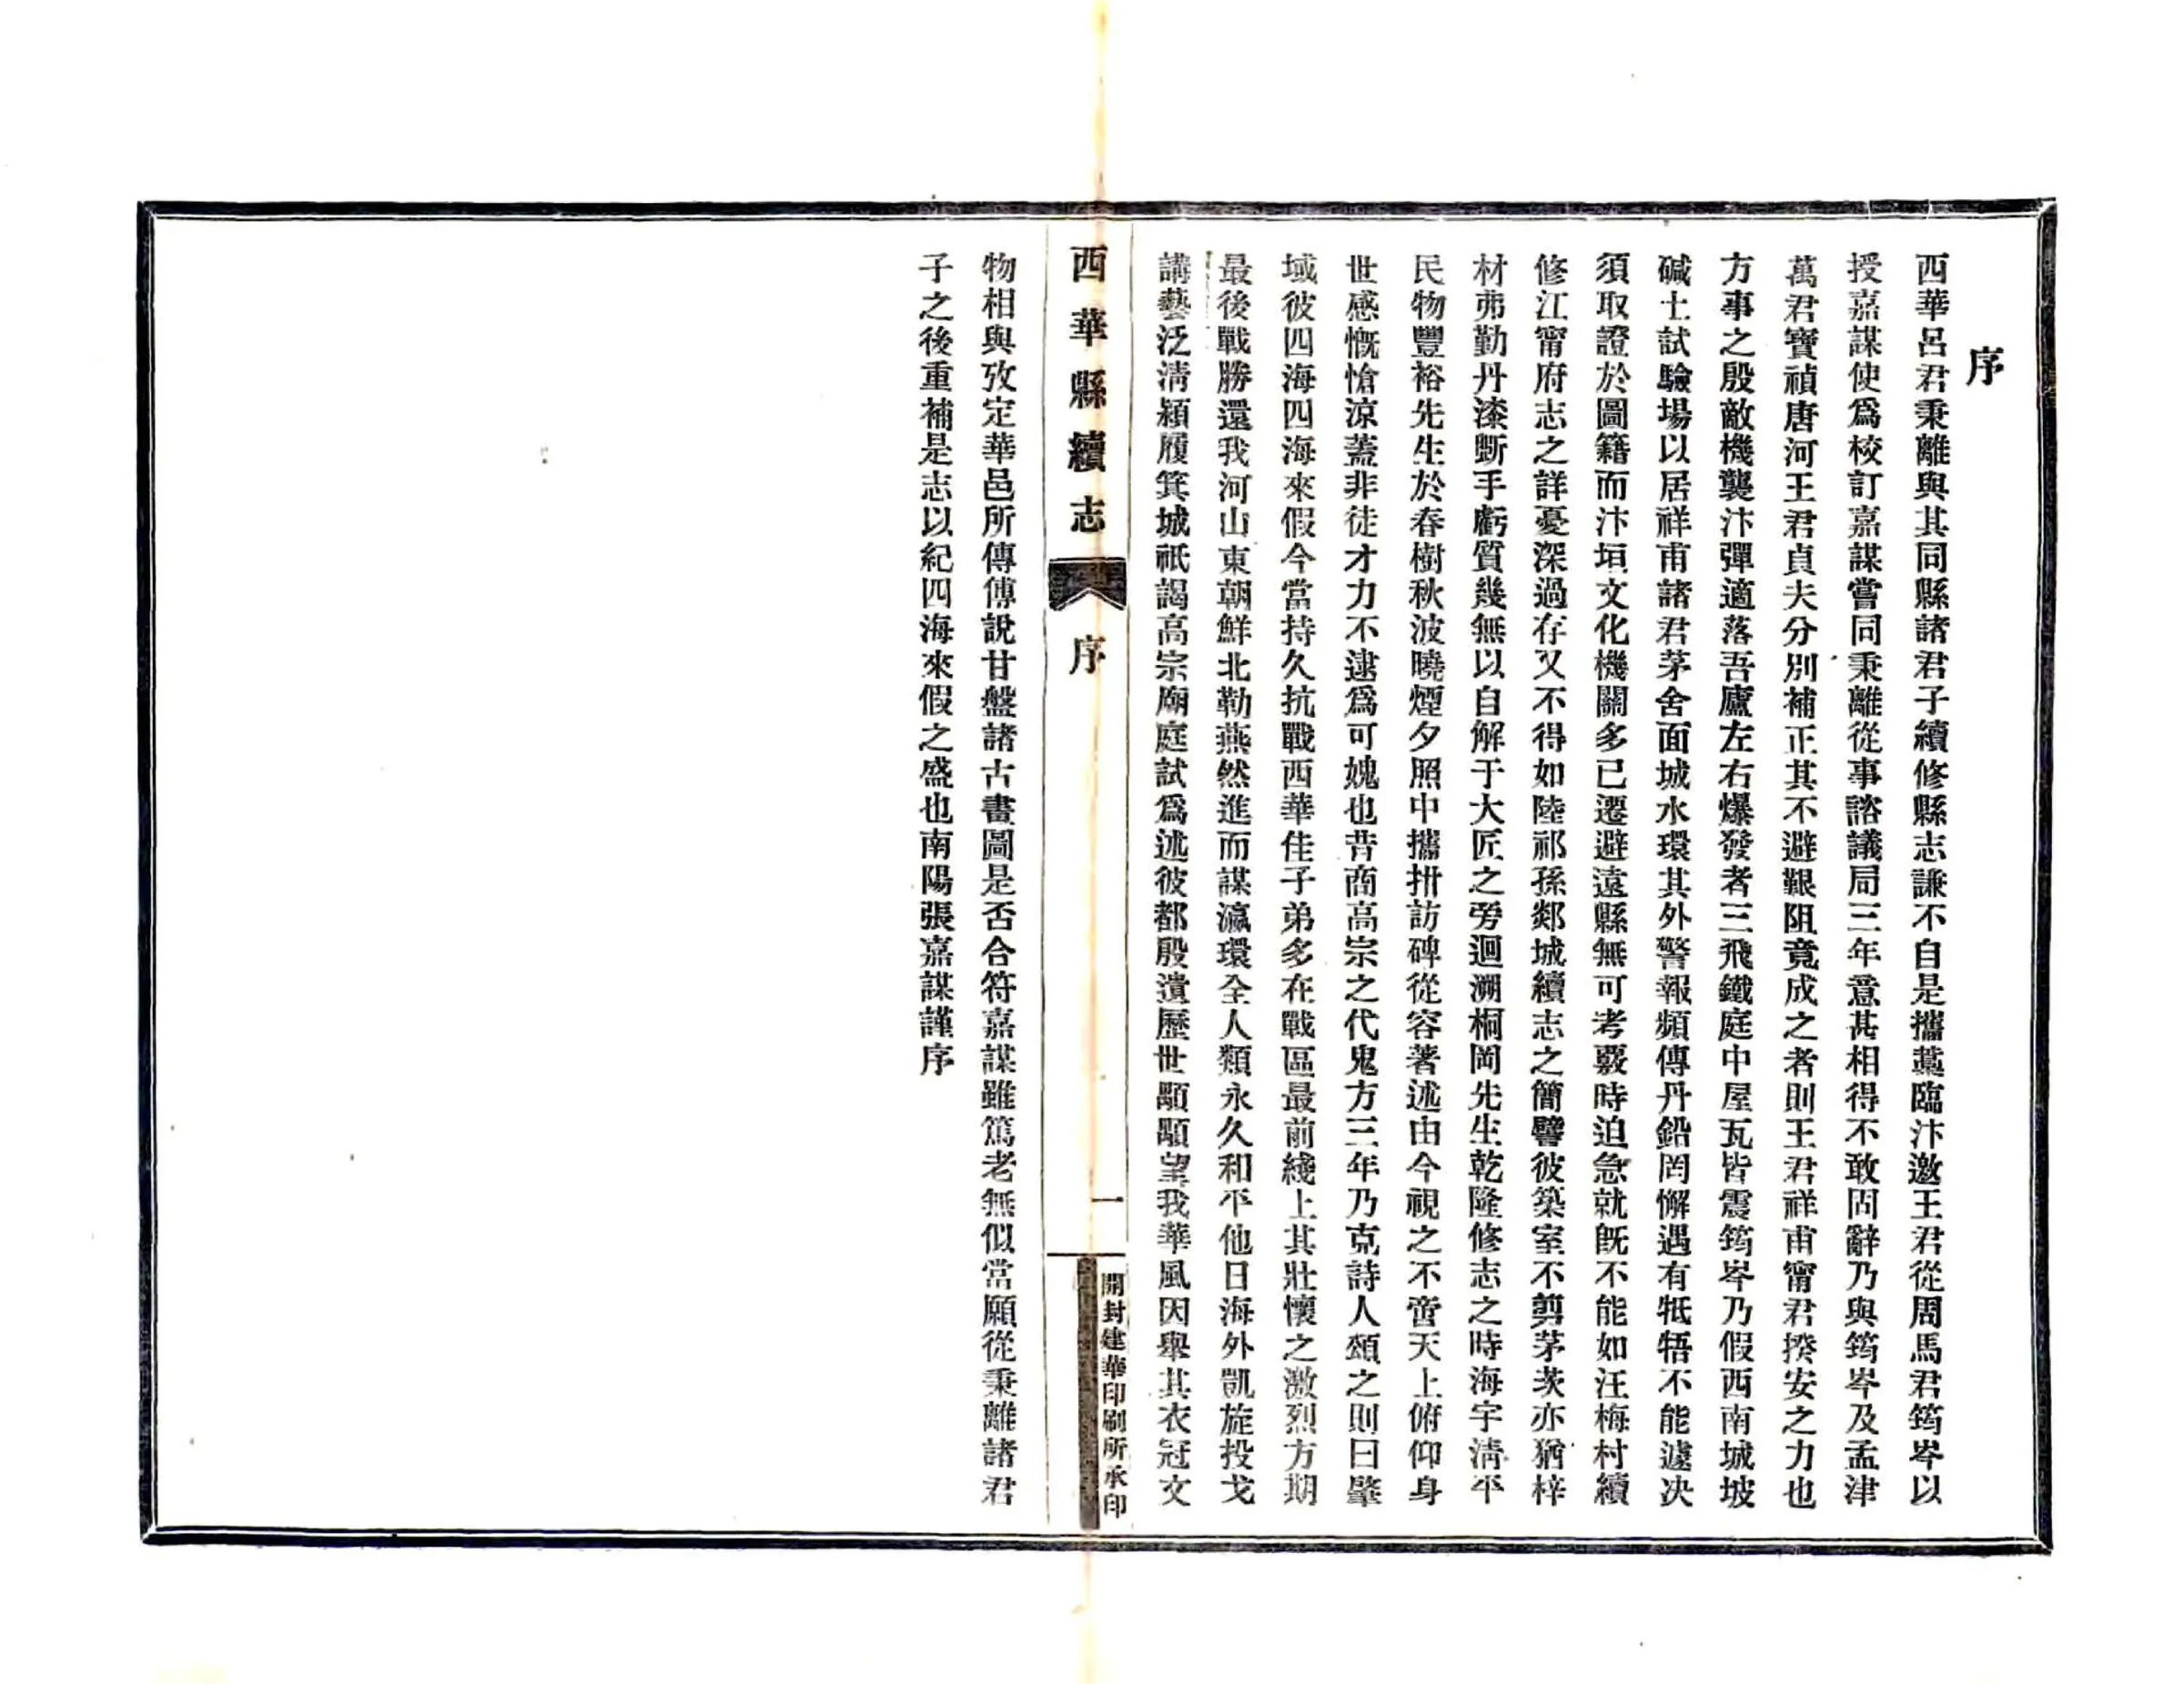 序
西華呂君秉離與其同縣諸君子續修縣志謙不自是攜藁臨汴邀王君從周馬君筠岑以
授嘉謀使爲校訂嘉謀嘗同秉離從事諮議局三年意甚相得不敢固辭乃與筠岑及孟津
萬君寶禎唐河王君貞夫分別補正其不避艱阻竟成之者則王君祥甫甯君揆安之力也
方事之殷敵機襲汴彈適落吾廬左右爆發者三飛鐵庭中屋瓦皆震筠岑乃假西南城坡
碱土試驗場以居祥甫諸君茅舍面城水環其外警報頻傳丹鉛罔懈遇有牴牾不能遽决
須取證於圖籍而汴垣文化機關多已遷避遠縣無可考覈時迫急就既不能如汪梅村續
修江甯府志之詳憂深過存又不得如陸祁孫郯城續志之簡譬彼築室不剪茅茨亦猶梓
材弗勤丹漆斲手虧質幾無以自解于大匠之旁迴溯桐岡先生乾隆修志之時海宇淸平
民物豐裕先生於春樹秋波曉煙夕照中攜拊訪碑從容著述由今視之不啻天上俯仰身
世感慨愴涼蓋非徒才力不逮爲可媿也昔商高宗之代鬼方三年乃克詩人頌之則曰肇
域彼四海四海來假今當持久抗戰西華佳子弟多在戰區最前綫上其壯懷之激烈方期
最後戰勝還我河山東朝鮮北勒燕然進而謀瀛環全人類永久和平他日海外凱旋投戈
講藝泛淸潁履箕城祇謁高宗廟庭試爲述彼都殷遺歷世顒顒望我華風因舉其衣冠文
西華縣續志
序
一
開封建華印刷所承印
物相與攷定華邑所傳傅說甘盤諸古畫圖是否合符嘉謀雖篤老無似當願從秉離諸君
子之後重補是志以紀四海來假之盛也南陽張嘉謀謹序